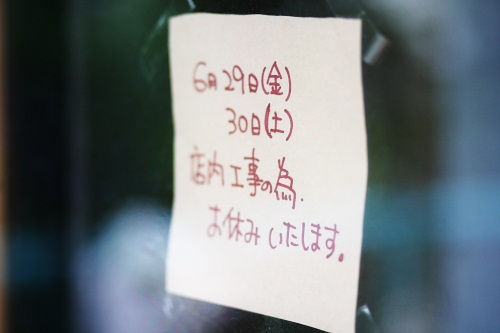 6月29日(金)
30日(土)
店内工事の為.
お休みいたします。